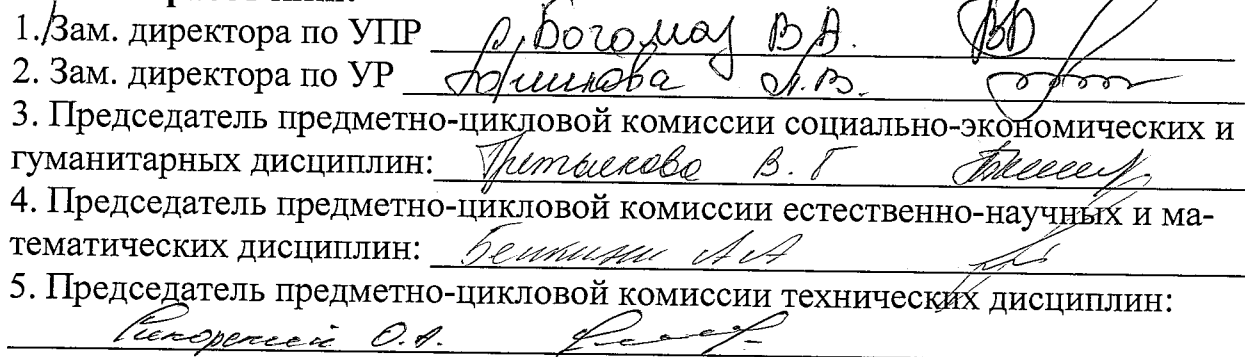 1. Зам. директора по УПР Богомаз В.А.
2. Зам. директора по УР Л.В.
3. Председатель предметно-цикловой комиссии социально-экономических и
гуманитарных дисциплин: Третьякова В.Г
4. Председатель предметно-цикловой комиссии естественно-научных и ма-
тематических дисциплин: А.А
5. Председатель предметно-цикловой комиссии технических дисциплин:
Сикорский О.А.